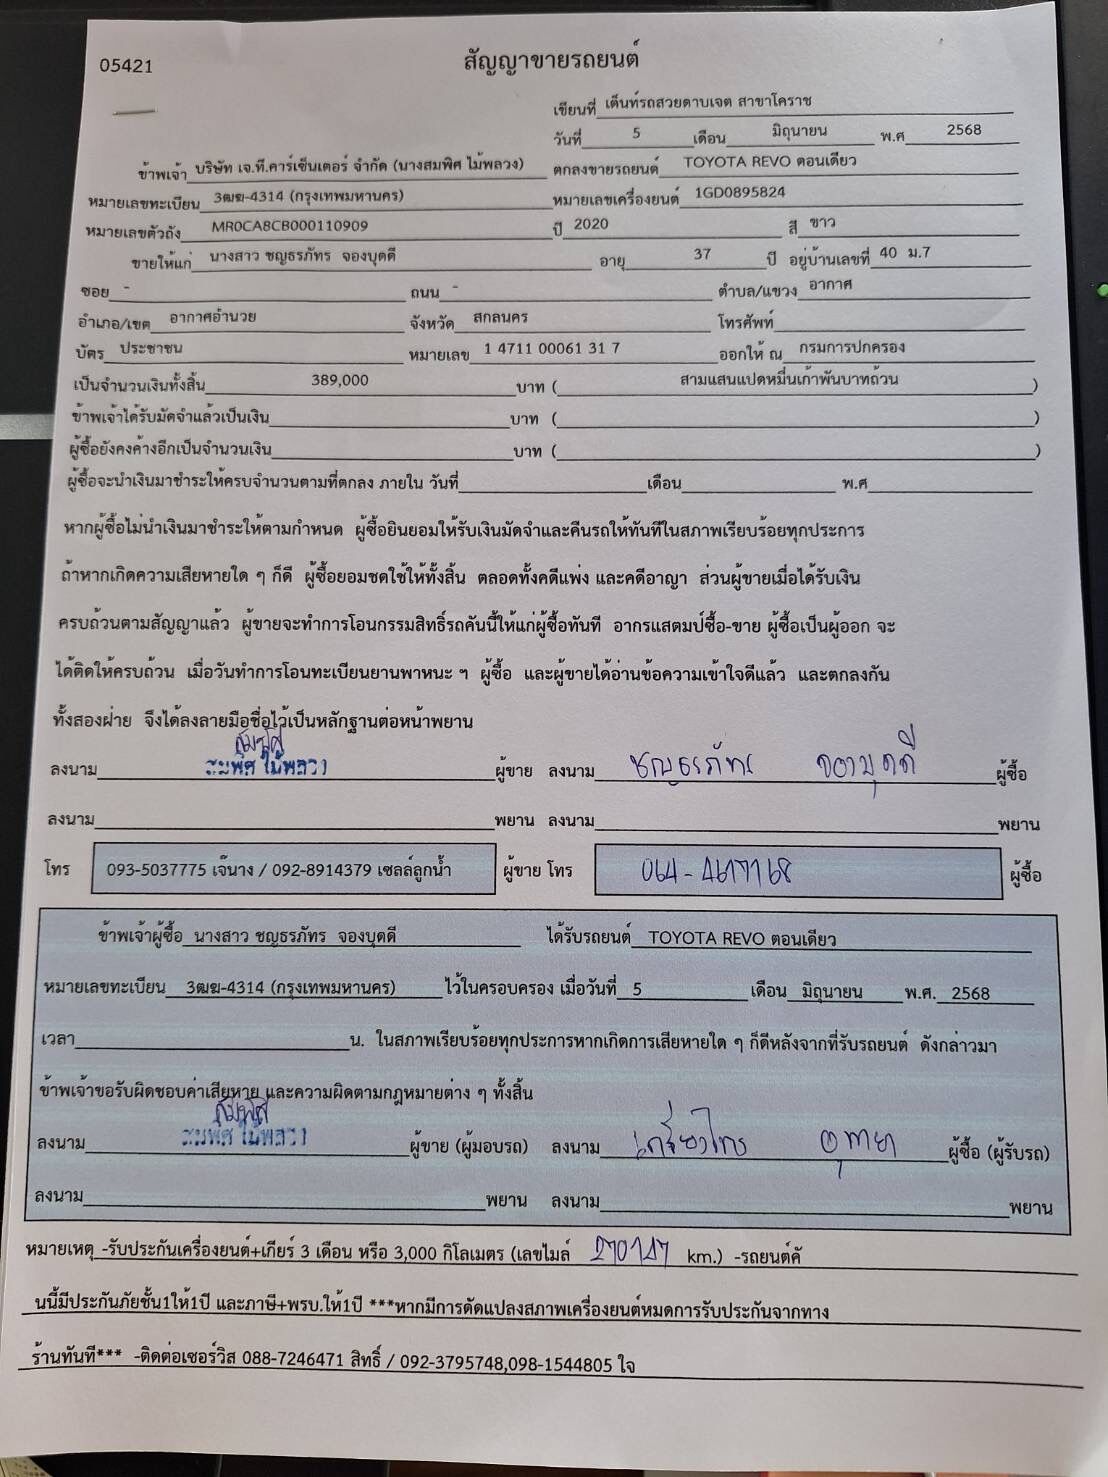 05421
สัญญาขายรถยนต์
เขียนที่ เต็นท์รถสวยดาบเจต สาขาโคราช
วันที่ 5 เดือน มิถุนายน พ.ศ 2568
ข้าพเจ้า บริษัท เจ.ที.คาร์เซ็นเตอร์ จำกัด (นางสมพิศ ไม้พลวง) ตกลงขายรถยนต์ TOYOTA REVO ตอนเดียว
หมายเลขทะเบียน 3ฒฆ-4314 (กรุงเทพมหานคร) หมายเลขเครื่องยนต์ 1GD0895824
หมายเลขตัวถัง MR0CA8CB000110909 ปี 2020 สี ขาว
ขายให้แก่ นางสาว ชญธรภัทร จองบุตดี อายุ 37 ปี อยู่บ้านเลขที่ 40 ม.7
ซอย - ถนน - ตำบล/แขวง อากาศ
อำเภอ/เขต อากาศอำนวย จังหวัด สกลนคร โทรศัพท์
บัตร ประชาชน หมายเลข 1 4711 00061 31 7 ออกให้ ณ กรมการปกครอง
เป็นจำนวนเงินทั้งสิ้น 389,000 บาท ( สามแสนแปดหมื่นเก้าพันบาทถ้วน )
ข้าพเจ้าได้รับมัดจำแล้วเป็นเงิน บาท ( )
ผู้ซื้อยังคงค้างอีกเป็นจำนวนเงิน บาท ( )
ผู้ซื้อจะนำเงินมาชำระให้ครบจำนวนตามที่ตกลง ภายใน วันที่ เดือน พ.ศ
หากผู้ซื้อไม่นำเงินมาชำระให้ตามกำหนด ผู้ซื้อยินยอมให้รับเงินมัดจำและคืนรถให้ทันทีในสภาพเรียบร้อยทุกประการ
ถ้าหากเกิดความเสียหายใด ๆ ก็ดี ผู้ซื้อยอมชดใช้ให้ทั้งสิ้น ตลอดทั้งคดีแพ่ง และคดีอาญา ส่วนผู้ขายเมื่อได้รับเงิน
ครบถ้วนตามสัญญาแล้ว ผู้ขายจะทำการโอนกรรมสิทธิ์รถคันนี้ให้แก่ผู้ซื้อทันที อากรแสตมป์ซื้อ-ขาย ผู้ซื้อเป็นผู้ออก จะ
ได้ติดให้ครบถ้วน เมื่อวันทำการโอนทะเบียนยานพาหนะ ฯ ผู้ซื้อ และผู้ขายได้อ่านข้อความเข้าใจดีแล้ว และตกลงกัน
ทั้งสองฝ่าย จึงได้ลงลายมือชื่อไว้เป็นหลักฐานต่อหน้าพยาน
สมพิศ
ลงนาม สมพิศ ไม้พลวง ผู้ขาย ลงนาม ชญธรภัทร จองบุตดี ผู้ซื้อ
ลงนาม พยาน ลงนาม พยาน
โทร 093-5037775 เจ๊นาง / 092-8914379 เซลล์ลูกน้ำ ผู้ขาย โทร ผู้ซื้อ
ข้าพเจ้าผู้ซื้อ นางสาว ชญธรภัทร จองบุตดี ได้รับรถยนต์ TOYOTA REVO ตอนเดียว
หมายเลขทะเบียน 3ฒฆ-4314 (กรุงเทพมหานคร) ไว้ในครอบครอง เมื่อวันที่ 5 เดือน มิถุนายน พ.ศ. 2568
เวลา น. ในสภาพเรียบร้อยทุกประการหากเกิดการเสียหายใด ๆ ก็ดีหลังจากที่รับรถยนต์ ดังกล่าวมา
ข้าพเจ้าขอรับผิดชอบค่าเสียหาย และความผิดตามกฎหมายต่าง ๆ ทั้งสิ้น
สมพิศ
ลงนาม สมพิศ ไม้พลวง ผู้ขาย (ผู้มอบรถ) ลงนาม เกรียงไกร อุทยา ผู้ซื้อ (ผู้รับรถ)
ลงนาม พยาน ลงนาม พยาน
หมายเหตุ -รับประกันเครื่องยนต์+เกียร์ 3 เดือน หรือ 3,000 กิโลเมตร (เลขไมล์ km.) -รถยนต์คั
นนี้มีประกันภัยชั้น1ให้1ปี และภาษี+พรบ.ให้1ปี ***หากมีการดัดแปลงสภาพเครื่องยนต์หมดการรับประกันจากทาง
ร้านทันที*** -ติดต่อเซอร์วิส 088-7246471 สิทธิ์ / 092-3795748,098-1544805 ใจ